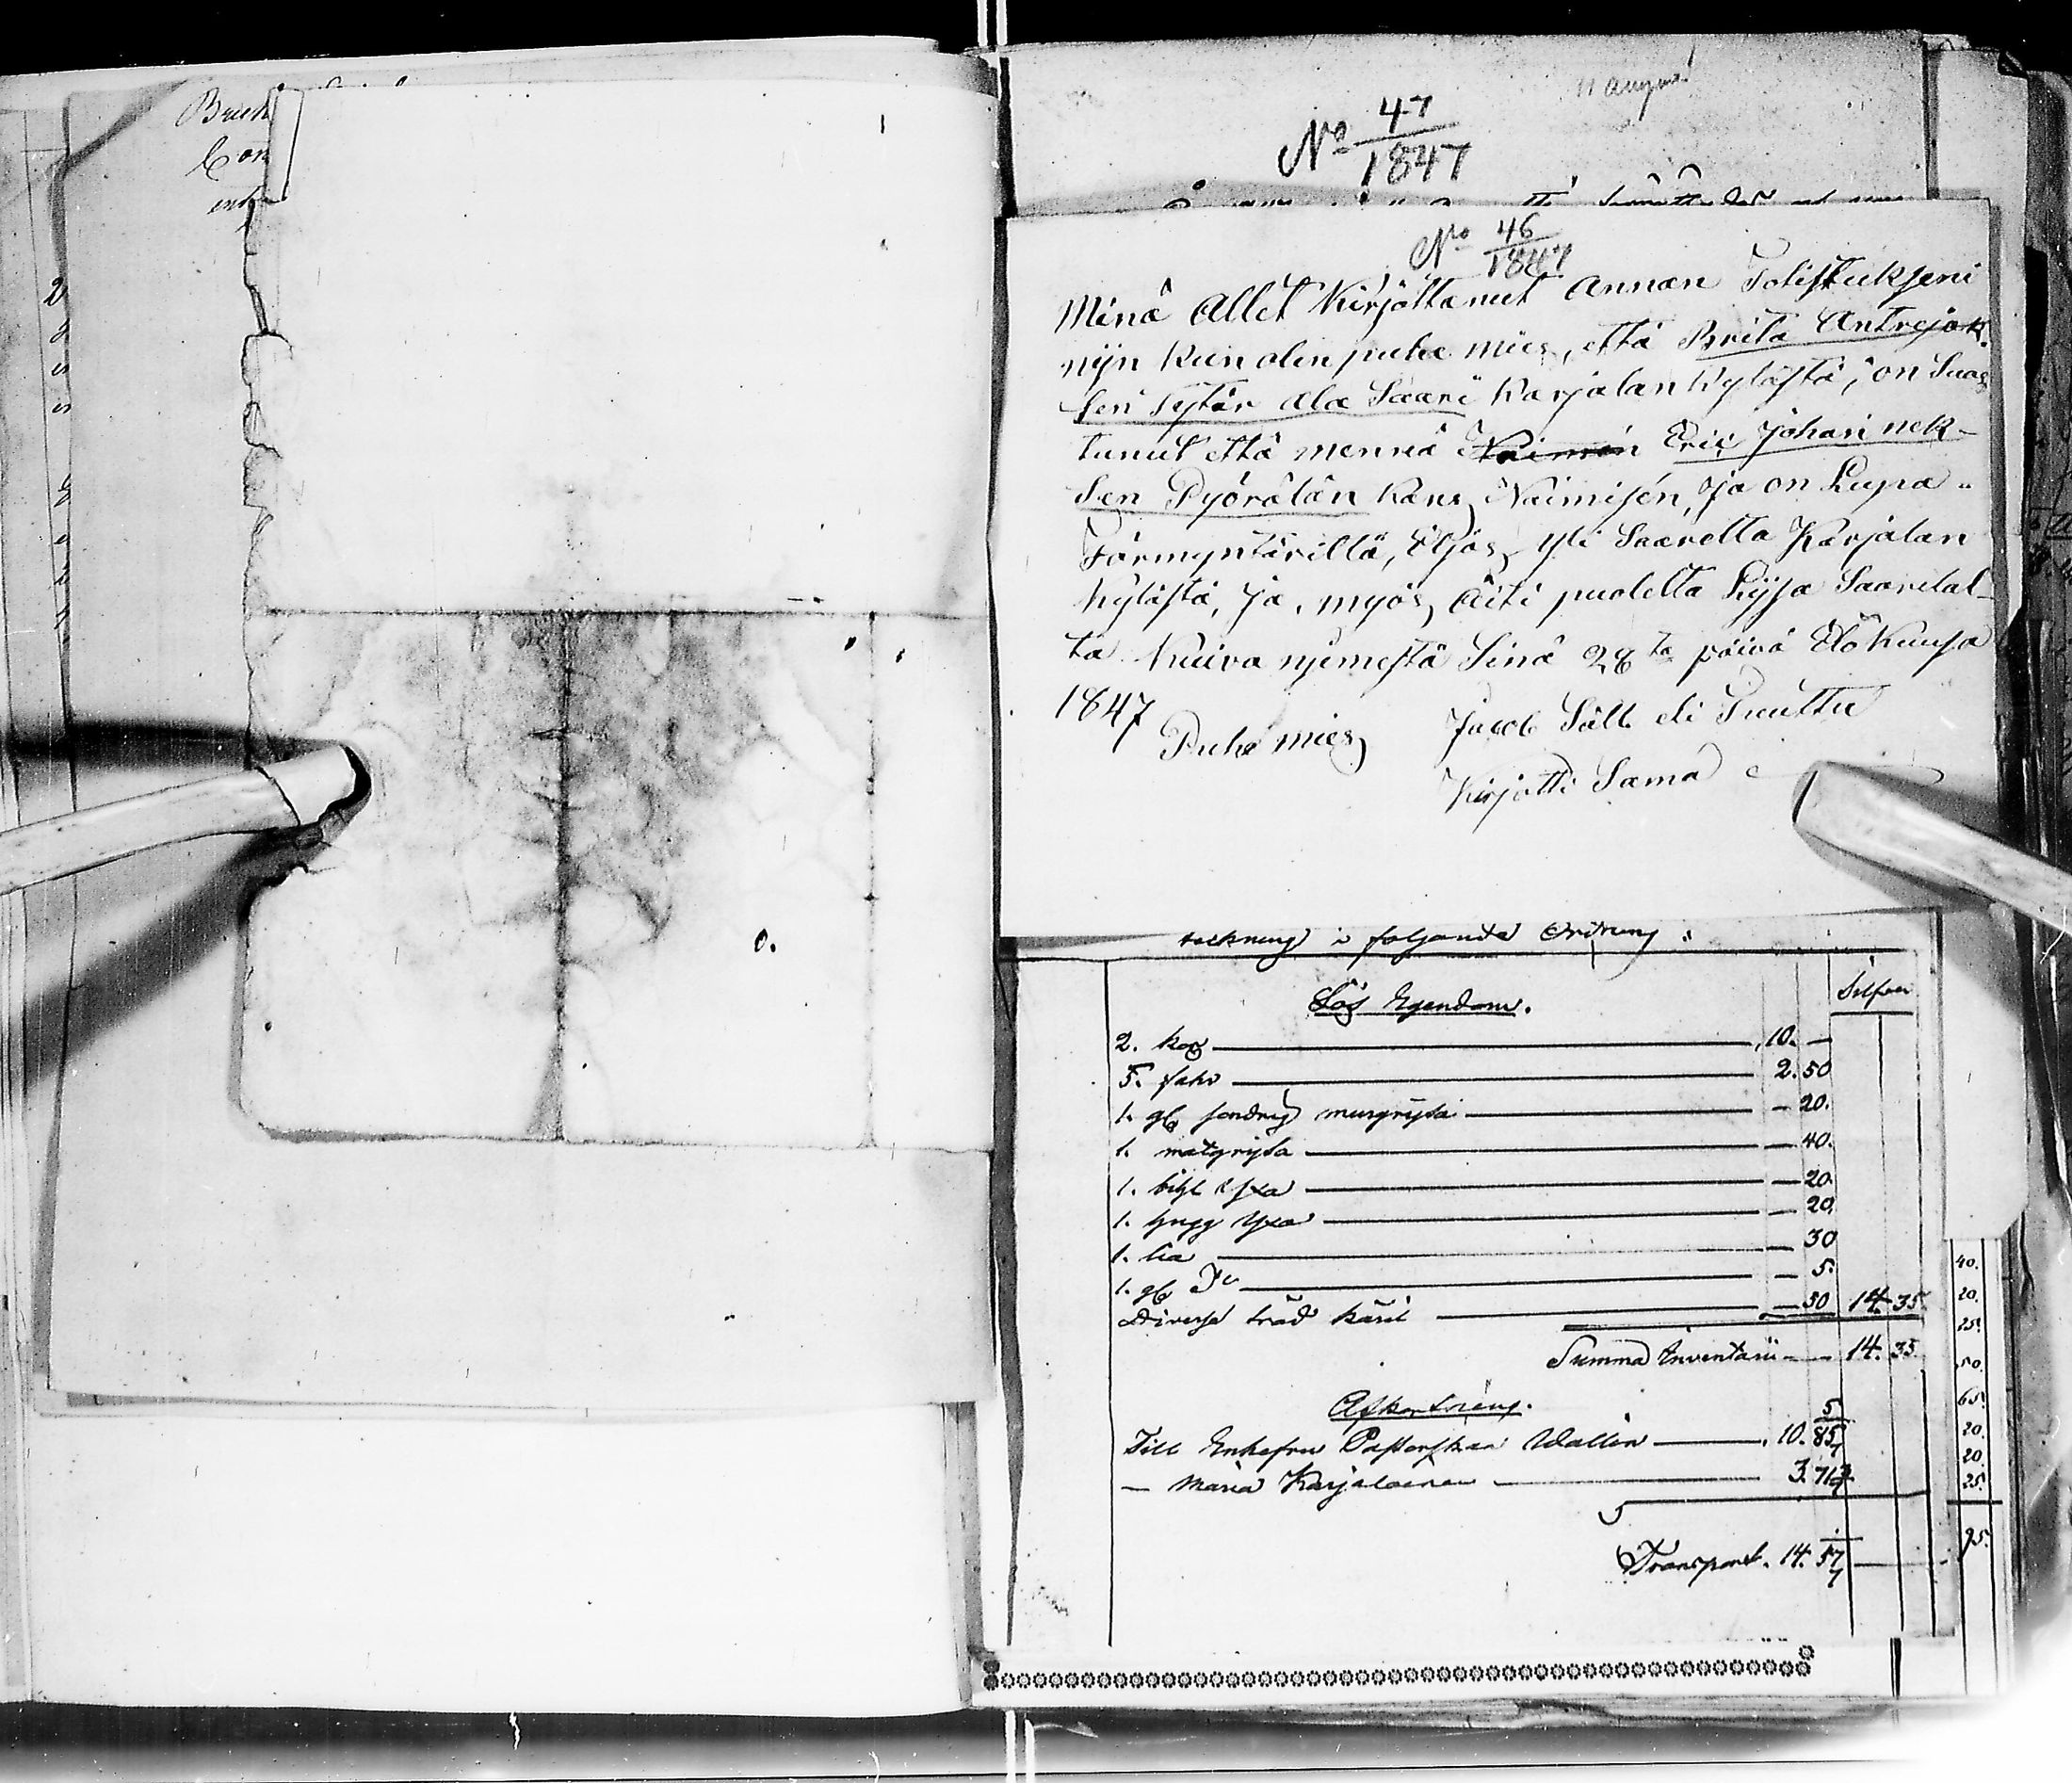 Bruk
Con
11 August
No 47/1847
No 46/1847
Minä Allet Kirjottanut Annan Totistukseni
nijn kuin olin puhe mies, että Brita Antrejak
sen tytär Ala Saari Karjalan Kylästä, on Suos
tunut että mennä Naimén Eric Johan nek-
sen Pyörälän kans Naimisén, ja on Lupa
Förmyntärillä, Eljas Yli Saarelta Karjalan
Kylästä, Ja, myös Äiti puolelta Lijsa Saarelal-
ta Kuiva njemestä Sinä 28ta päivä Elo Kuusa
1847
Puhe mies Jacob Säll eli Tuuttu
Kirjotti Sama
teckning i följande Ordning:
Silfver
Lös Egendom.
2. kor 10. —
5. får 2. 50
1. gl sondrig murgryta — 20.
1. matgryta — 40.
1. bihl Yxa — 20.
1. hugg Yxa — 20.
1. lia — 30
1. gl Do — 5.
Diverse träd käril — 50 14. 35.
Summa Inventarii — 14. 35.
Afkortning.
Till Enkefru Pastorskan Wallin 10. 85 5/7
— Maria Karjalainen 3. 71 3/7
Transport. 14. 57 1/7
40.
20.
25.
50.
65.
20.
20.
25.
95.